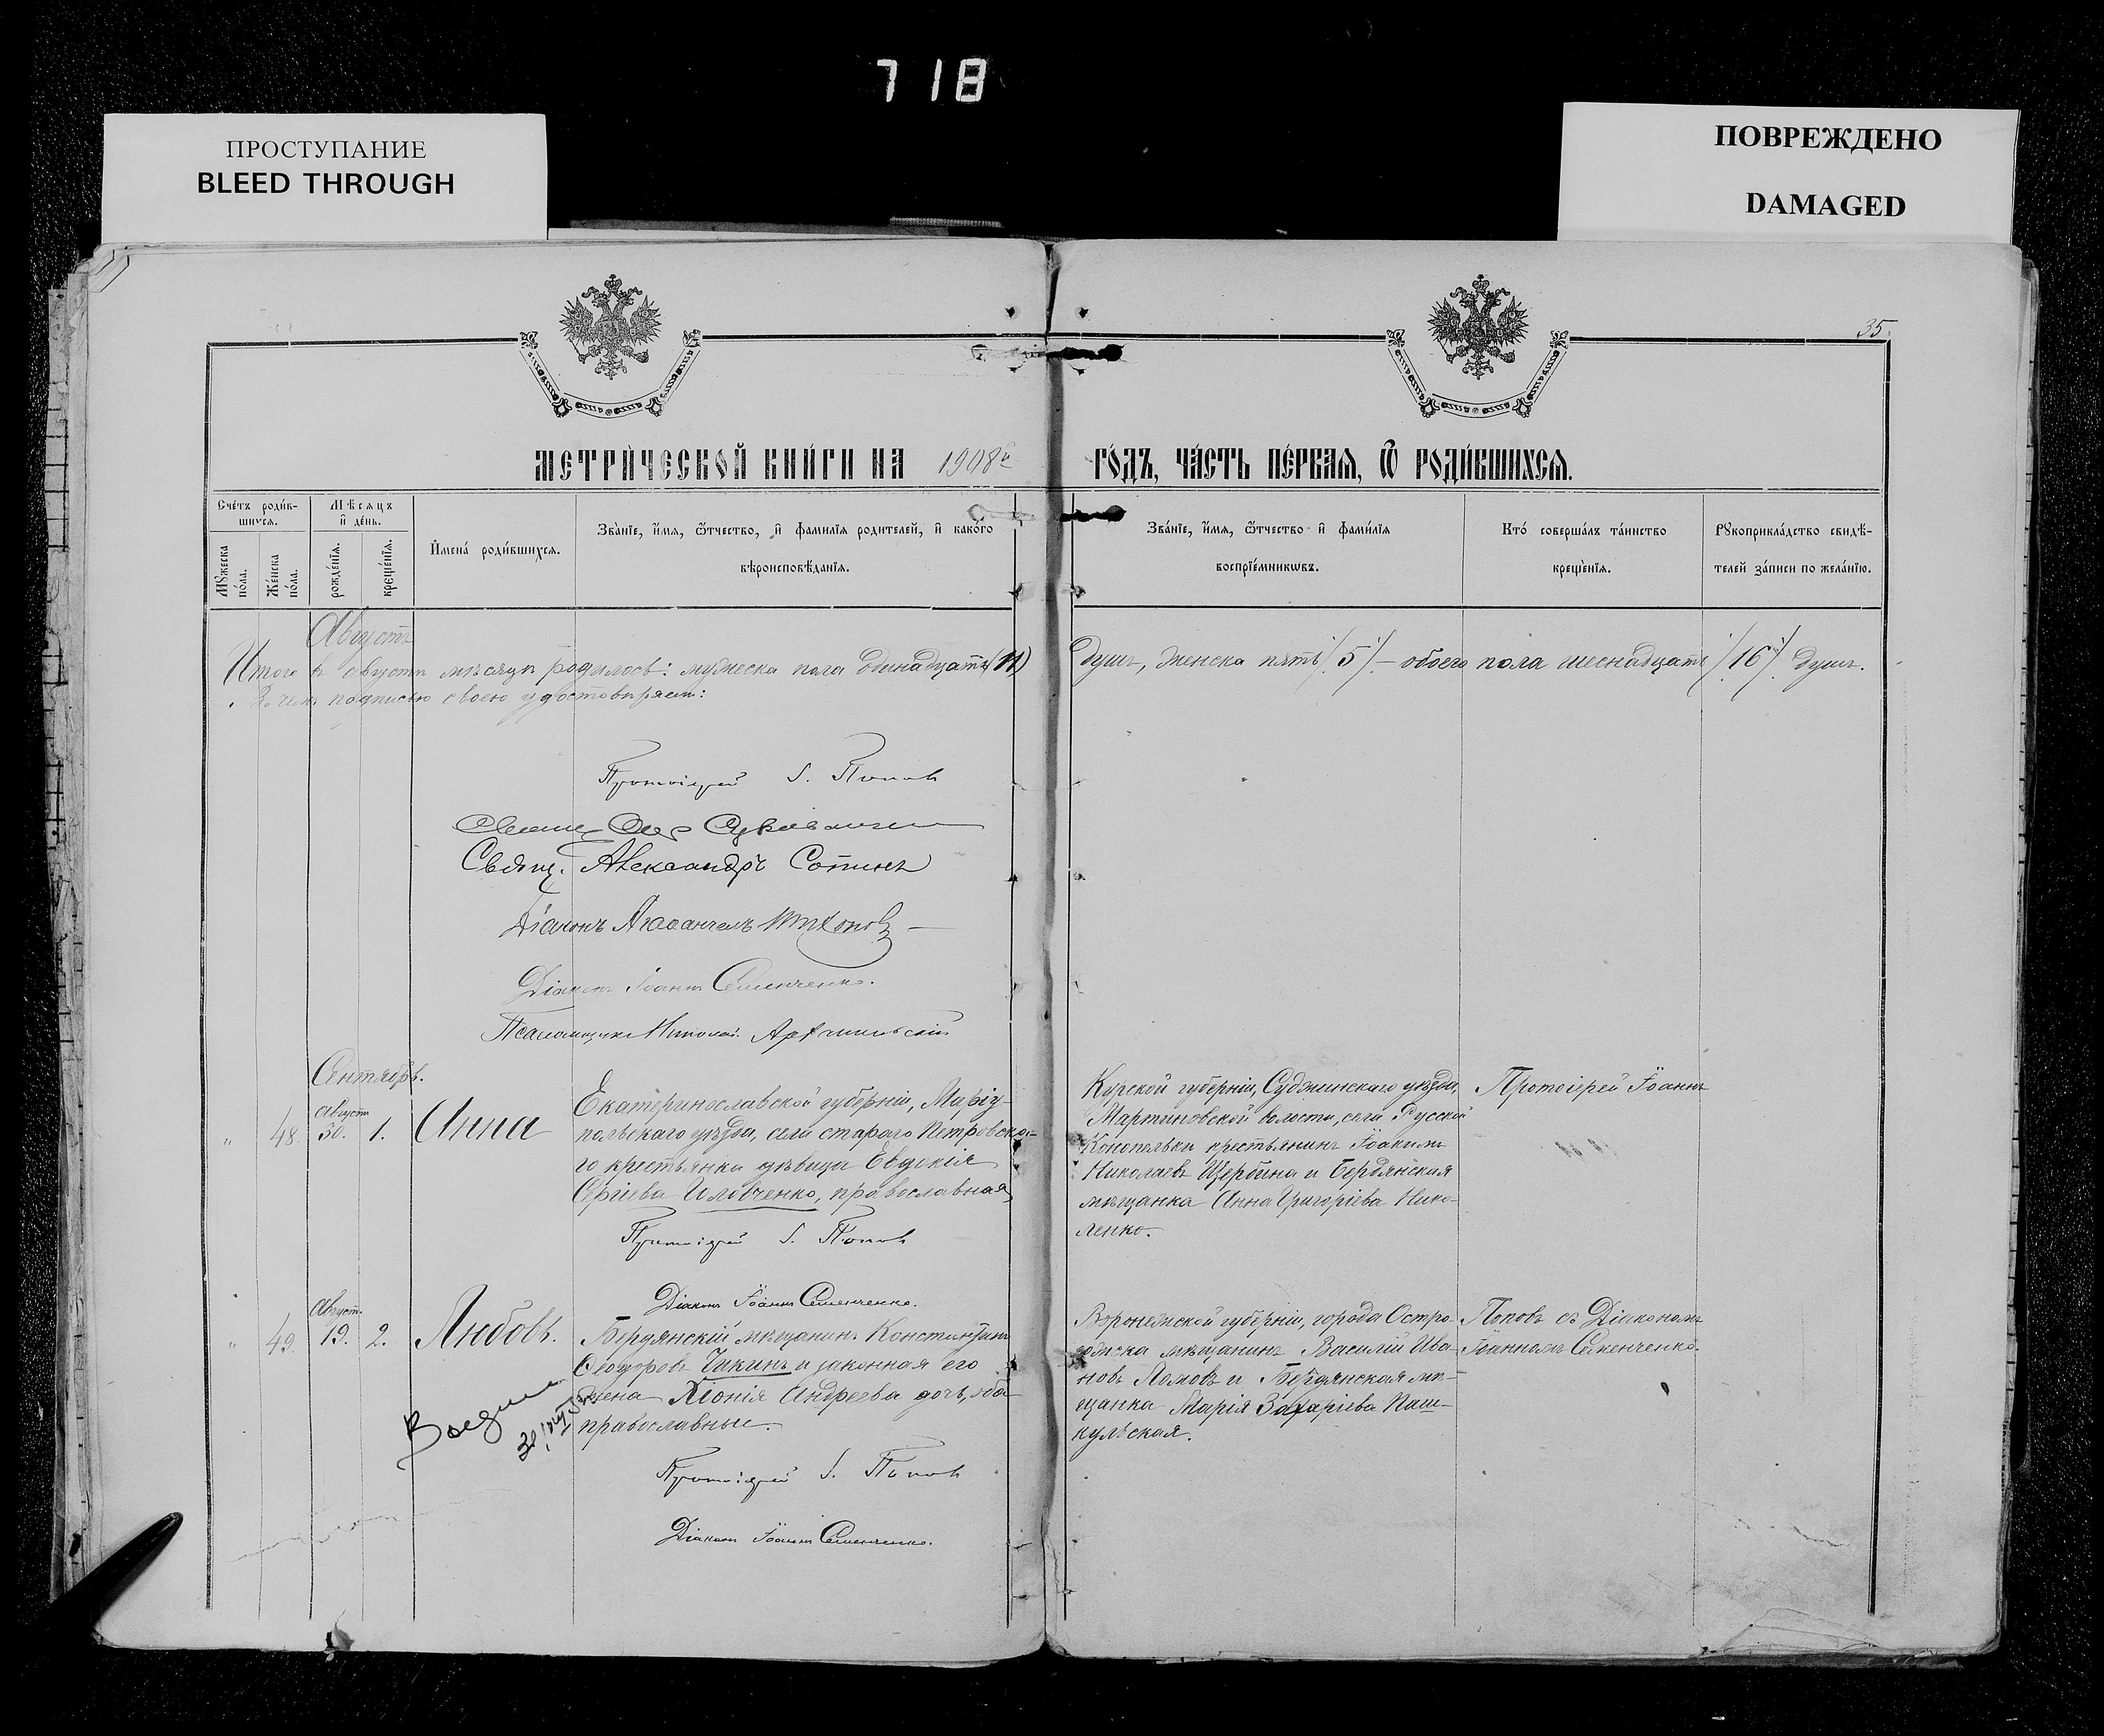 718
ПРОСТУПАНИЕ
BLEED THROUGH
ПОВРЕЖДЕНО
DAMAGED
35
МЕТРИ́ЧЕСКОЙ КНИ́ГИ НА 1908й ГО́ДЪ, ЧА́СТЬ ПЕ́РВАЯ, Ѿ РОДИ́ВШИХСЯ.
Сче́тъ роди́в-
шихся.
Мѣ́сяцъ
и҆ де́нь.
Мꙋ́жеска
по́ла.
Же́нска
по́ла.
рожде́нїя.
креще́нїя.
И҆мена́ роди́вшихся.
Зва́нїе, и҆́мя, ѻ҆́тчество, и҆ фами́лїя роди́телей, и҆ како́го
вѣроисповѣ́данїя.
Зва́нїе, и҆́мя, ѻ҆́тчество и҆ фами́лїя
воспрїе́мникѡвъ.
Кто́ соверша́лъ та́инство
креще́нїя.
Рꙋкоприкла́дство свидѣ́-
телей за́писи по жела́нїю.
Августъ
Итого въ августѣ мѣсяцѣ родилось: мужеска пола одинадцать (11) душъ, женска пять /5/ – обоего пола шеснадцать /16/ душъ.
Въ чемъ подписью своею удостовѣряемъ:
Протоіерей І. Поповъ
Свящ. Александръ Сотинъ
Діаконъ Агаѳангелъ
Діаконъ Іоаннъ Семенченко.
Псаломщикъ Николай
Сентябрь.
" 48. Августъ 30. 1. Анна
Екатеринославской губерніи, Маріу-
польскаго уѣзда, села стараго Петровска-
го крестьянка дѣвица Евдокія
Сергіева Иловченко, православная
Протоіерей І. Поповъ
Діаконъ Іоаннъ Семенченко.
Курской губерніи, Суджинскаго уѣзда,
Мартиновской волости, села Русской
Конопельки крестьянинъ Іоакимъ
Николаевъ Щербина и Бердянская
мѣщанка Анна Григоріева Нико-
ленко.
Протоіерей Іоаннъ
" 49. Август. 19. 2. Любовь.
Бердянскій мѣщанинъ Константинъ
Ѳеодоровъ Чикинъ и законная его
жена Хіонія Андреева дочь, оба
православные.
Протоіерей І. Поповъ
Діаконъ Іоаннъ Семенченко.
Воронежской губерніи, города Остро-
гожска мѣщанинъ Василій Ива-
новъ Поповъ и Бердянская мѣ-
щанка Марія Захаріева Паш-
кульская.
Поповъ съ Діакономъ
Іоанномъ Семенченко.